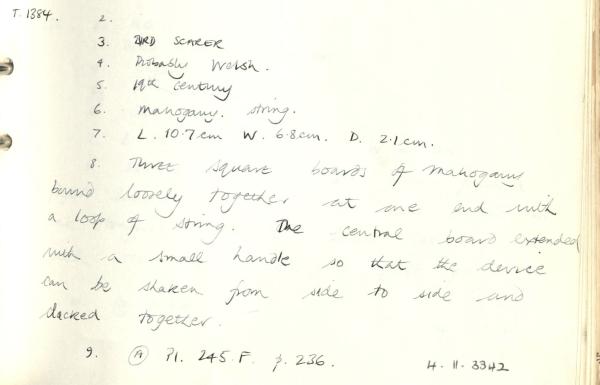 T.1384.
2.
3. BIRD SCARER
4. Probably Welsh.
5. 19th century
6. Mahogany. string.
7. L. 10.7cm W. 6.8cm. D. 2.1cm.
8. Three square boards of mahogany
bound loosely together at one end with
a loop of string. The central board extended
with a small handle so that the device
can be shaken from side to side and
clacked together.
9. (A) Pl. 245.F. p.236. H.11.3342